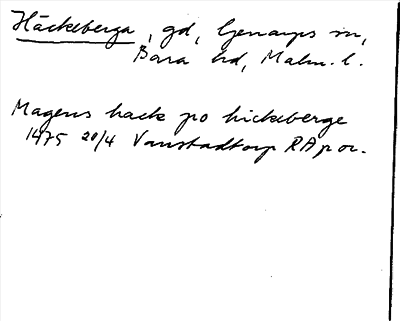 Häckeberga, gd, Genarps sn,
Bara hd, Malm. l.
Magens hack po hickeberge
1475 20/4 Vanstadtorp RAp or.